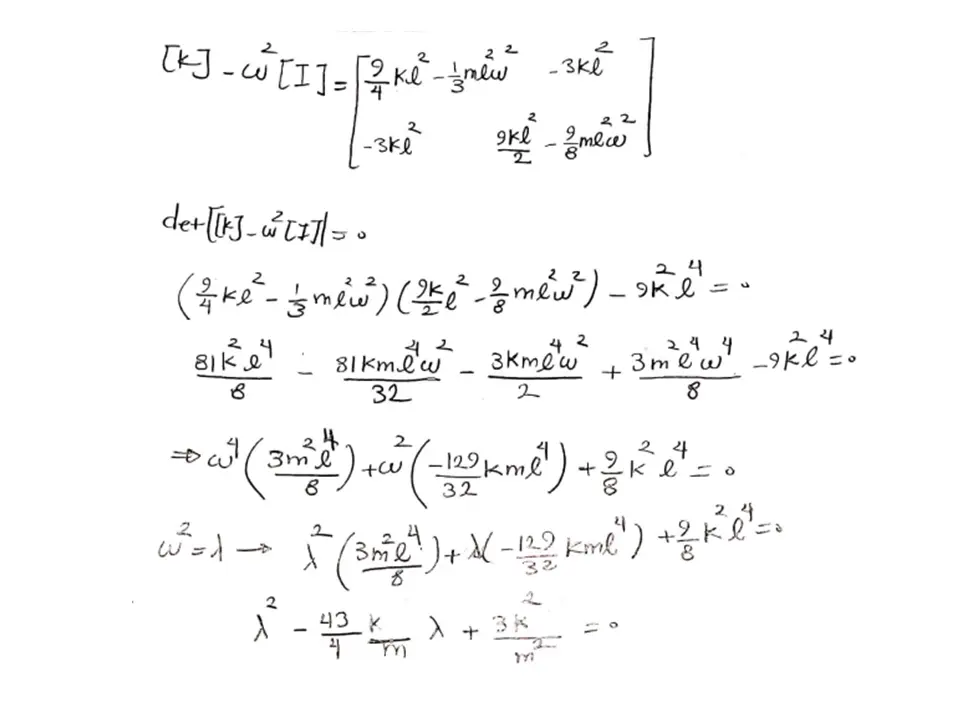 [k] - ω² [I] = [ 9/4 kl² - 1/3 ml²ω²   -3kl²
-3kl²   9kl²/2 - 9/8 ml²ω² ]
det|[k] - ω²[I]| = 0
(9/4 kl² - 1/3 ml²ω²)(9k/2 l² - 9/8 ml²ω²) - 9k²l⁴ = 0
81k²l⁴/8 - 81kml⁴ω²/32 - 3kml⁴ω²/2 + 3m²l⁴ω⁴/8 - 9k²l⁴ = 0
⇒ ω⁴(3m²l⁴/8) + ω²(-129/32 kml⁴) + 9/8 k²l⁴ = 0
ω² = λ → λ²(3m²l⁴/8) + λ(-129/32 kml⁴) + 9/8 k²l⁴ = 0
λ² - 43/4 k/m λ + 3k²/m² = 0